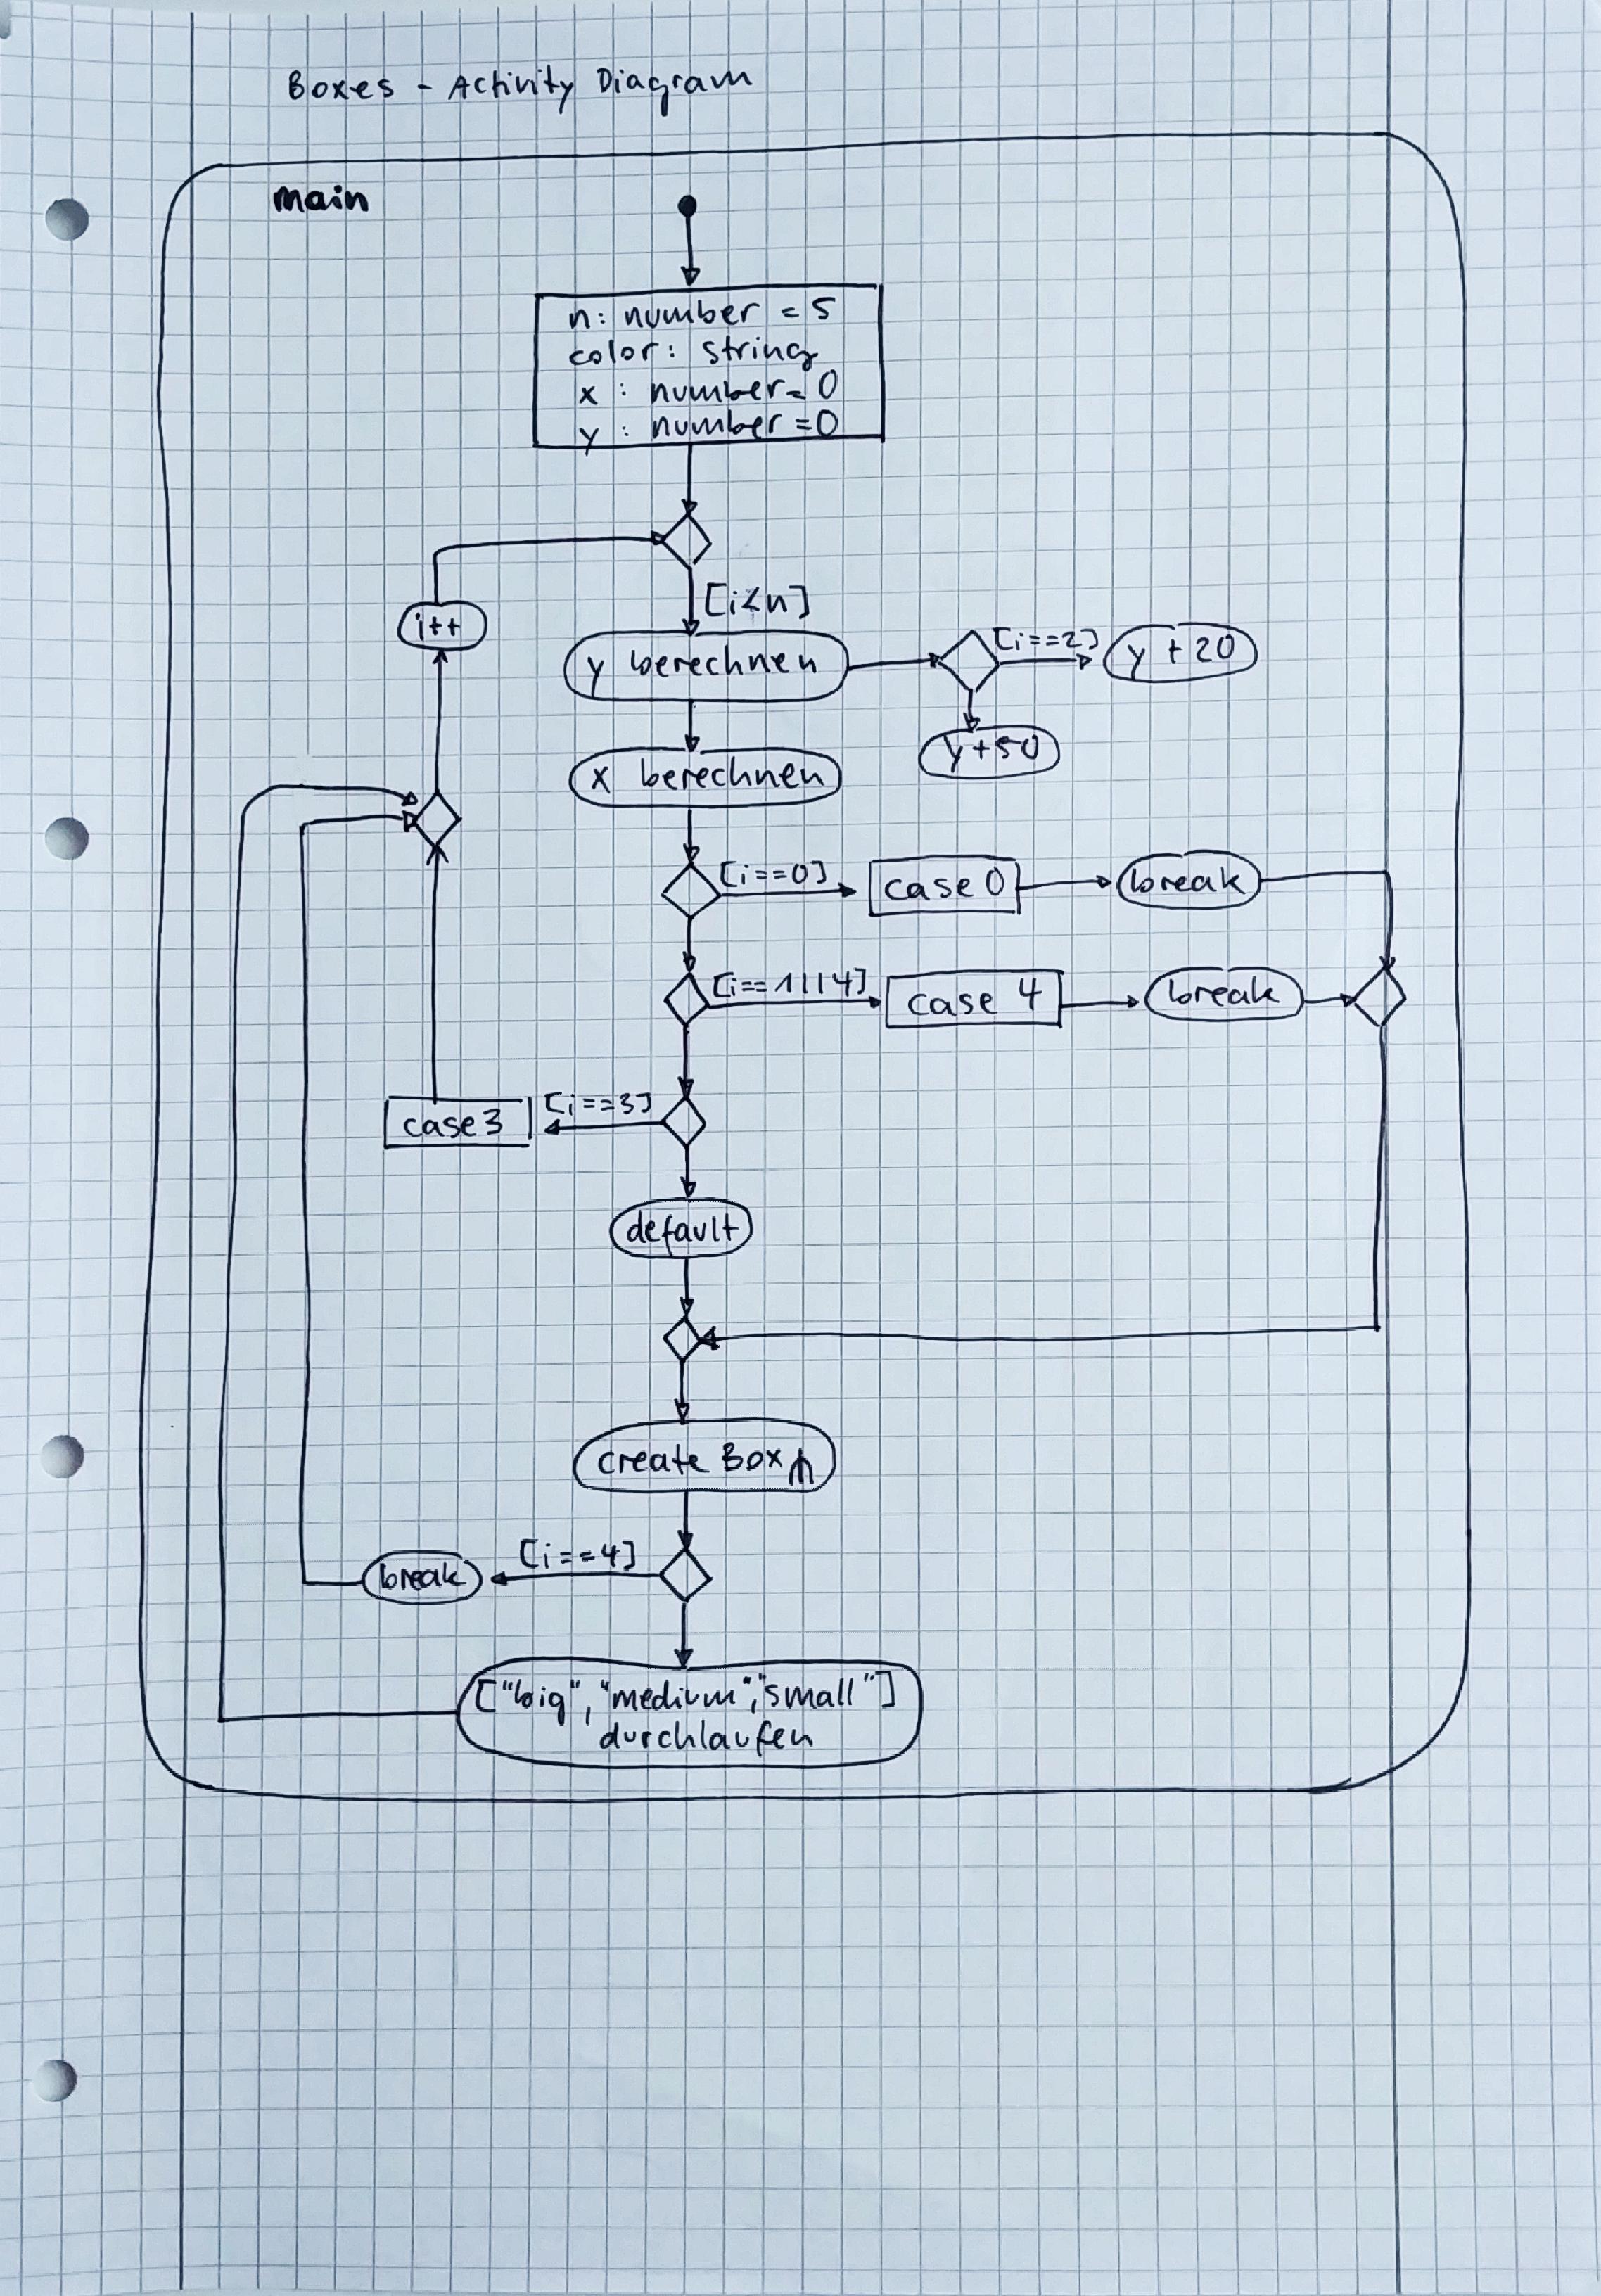 Boxes - Activity Diagram
main
n: number = 5
color: string
x : number = 0
y : number = 0
[i<n]
i++
y berechnen
[i==2]
y + 20
y+50
x berechnen
[i==0]
case 0
break
[i==1||4]
case 4
break
[i==3]
case 3
default
create Box
[i==4]
break
["big", "medium", "small"]
durchlaufen